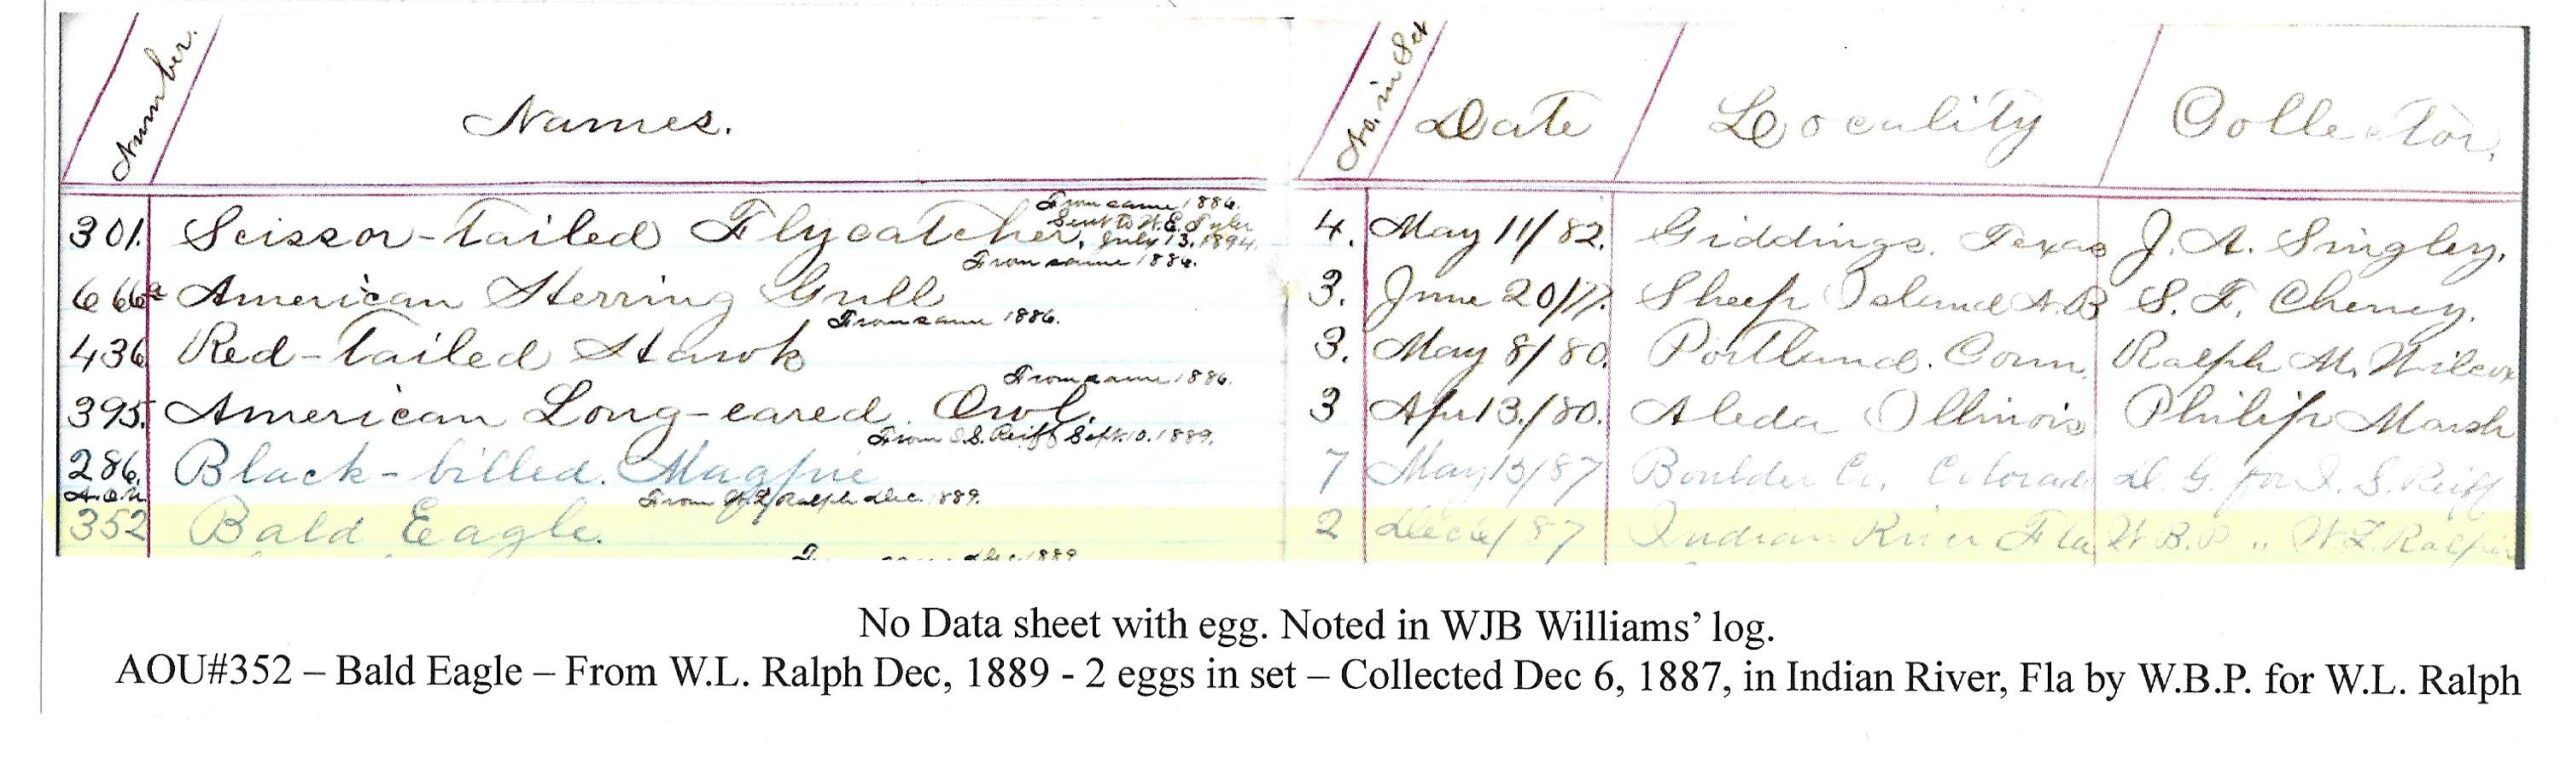 Number. Names. No. in Set Date Locality Collector.
From same 1886.
Sent to W.E. Tyler
July 13, 1894.
301. Scissor-tailed Flycatcher. 4. May 11/82. Giddings. Texas J. A. Singley.
From same 1886.
666a American Herring Gull 3. June 20/77. Sheep Island N.B S. F. Cheney.
From same 1886.
436 Red-tailed Hawk 3. May 8/80. Portland. Conn. Ralph M. Wilcox
From same 1886.
395. American Long-eared Owl. 3 Apr 13./80. Aledo Illinois Philip Marsh
From I.S. Reiff Sept. 10. 1889.
286. Black-billed. Magpie 7 May 13/87 Boulder Co. Colorado D. G. for I. S. Reiff
A.O.U. From W L Ralph Dec. 1889.
352 Bald Eagle. 2 Dec 6/87 Indian River Fla W.B.P. „ W.L. Ralph
Dec 1889
No Data sheet with egg. Noted in WJB Williams’ log.
AOU#352 – Bald Eagle – From W.L. Ralph Dec, 1889 - 2 eggs in set – Collected Dec 6, 1887, in Indian River, Fla by W.B.P. for W.L. Ralph